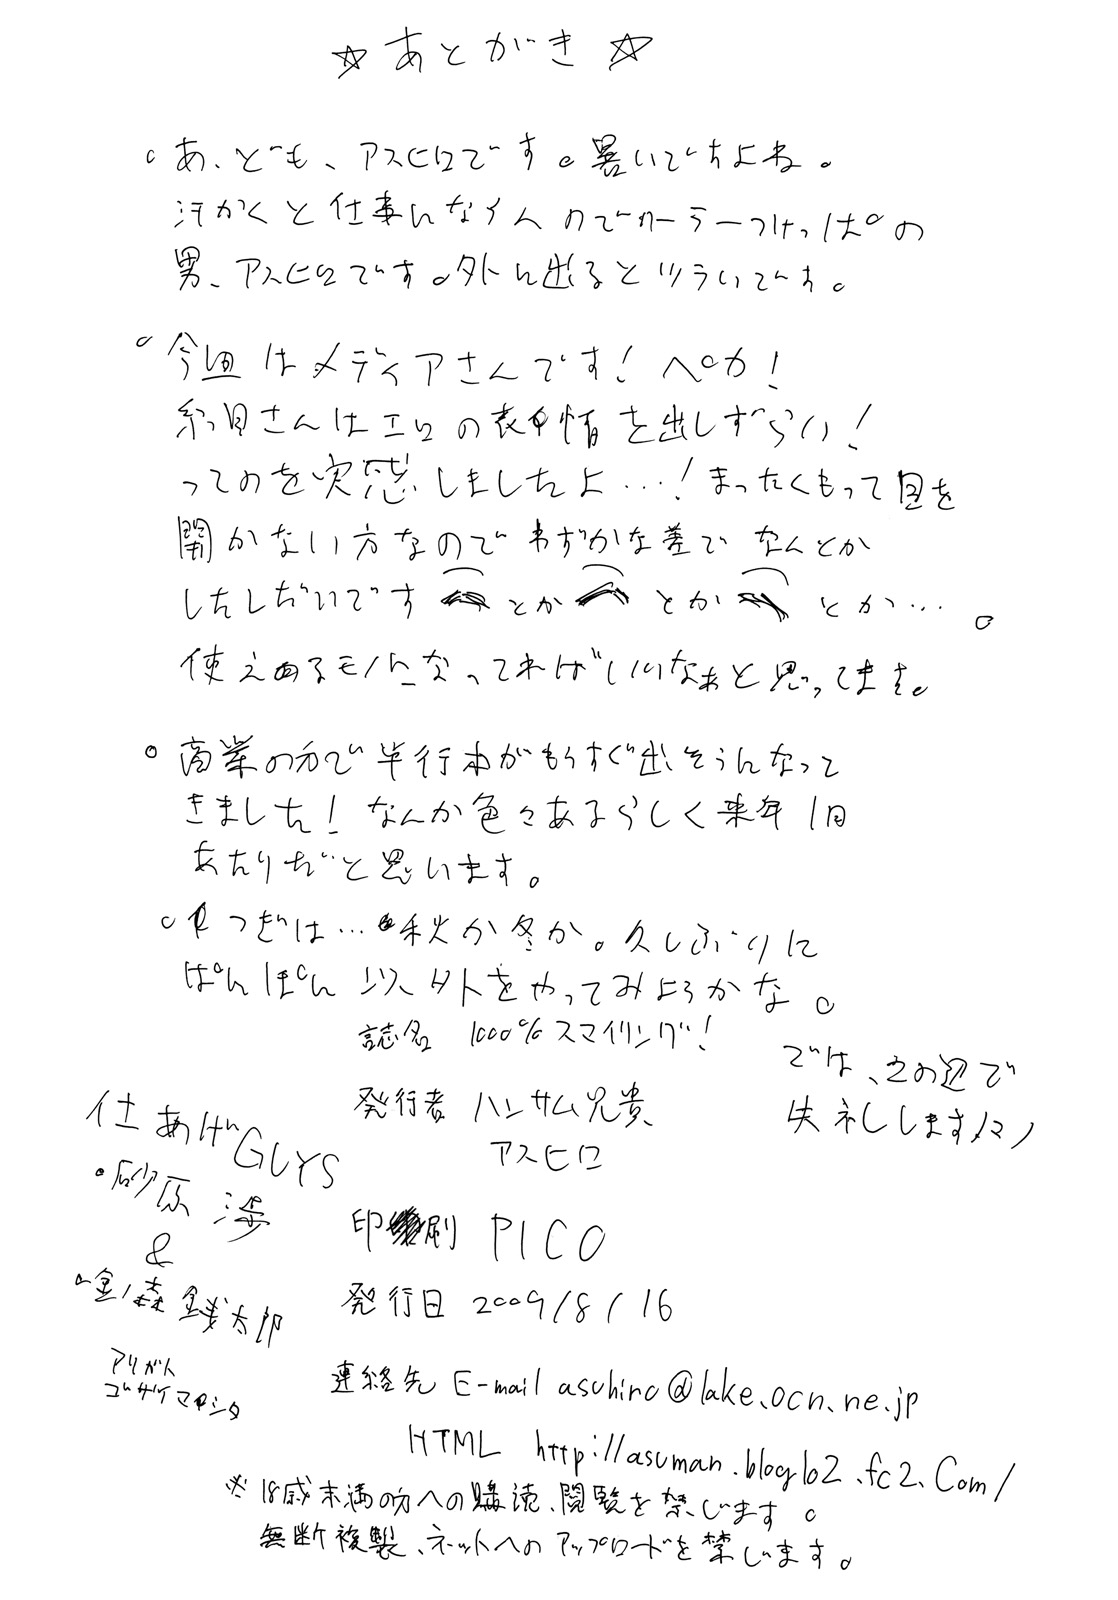 ☆あとがき☆
。あ、ども、アスヒロです。暑いですよね。
汗かくと仕事になイんのでクーラーつけっぱの
男、アスヒロです。外に出るとツライです。
。今回はメディアさんです!ペカ!
糸目さんはエロの表情を出しずらい!
ってのを実感しましたよ…!まったくもって目を
開かない方なのでわずかな差でなんとか
したしだいです とか とか とか…。
使えるモノになってればいいなぁと思ってます。
。商業の方で単行本がもうすぐ出そうになって
きました!なんか色々あるらしく来年1月
あたりだと思います。
。つぎは…秋か冬か。久しぶりに
ぱんぽん以外をやってみようかな。
では、この辺で
失礼しますノシ
誌名 1000%スマイリング!
発行者 ハンサム兄貴
アスヒロ
印刷 PICO
発行日 2009/8/16
連絡先 E-mail asuhiro@lake.ocn.ne.jp
HTML http://asuman.blog102.fc2.com/
※18歳未満の方への購読、閲覧を禁じます。
無断複製、ネットへのアップロードを禁じます。
仕あげGUYS
・砂原 渉
&
・金ノ森 銭太郎
アリガト
ゴザイマシタ